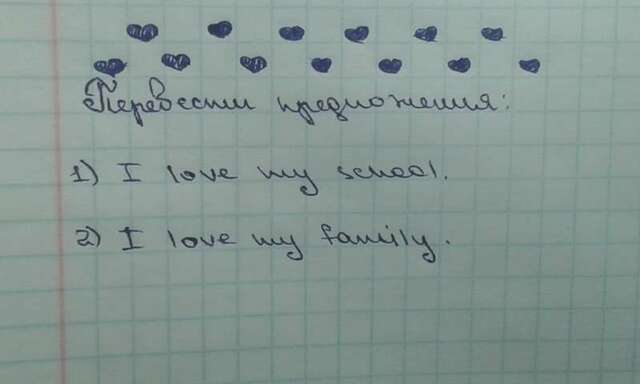 Перевести предложения:
1) I love my school.
2) I love my family.